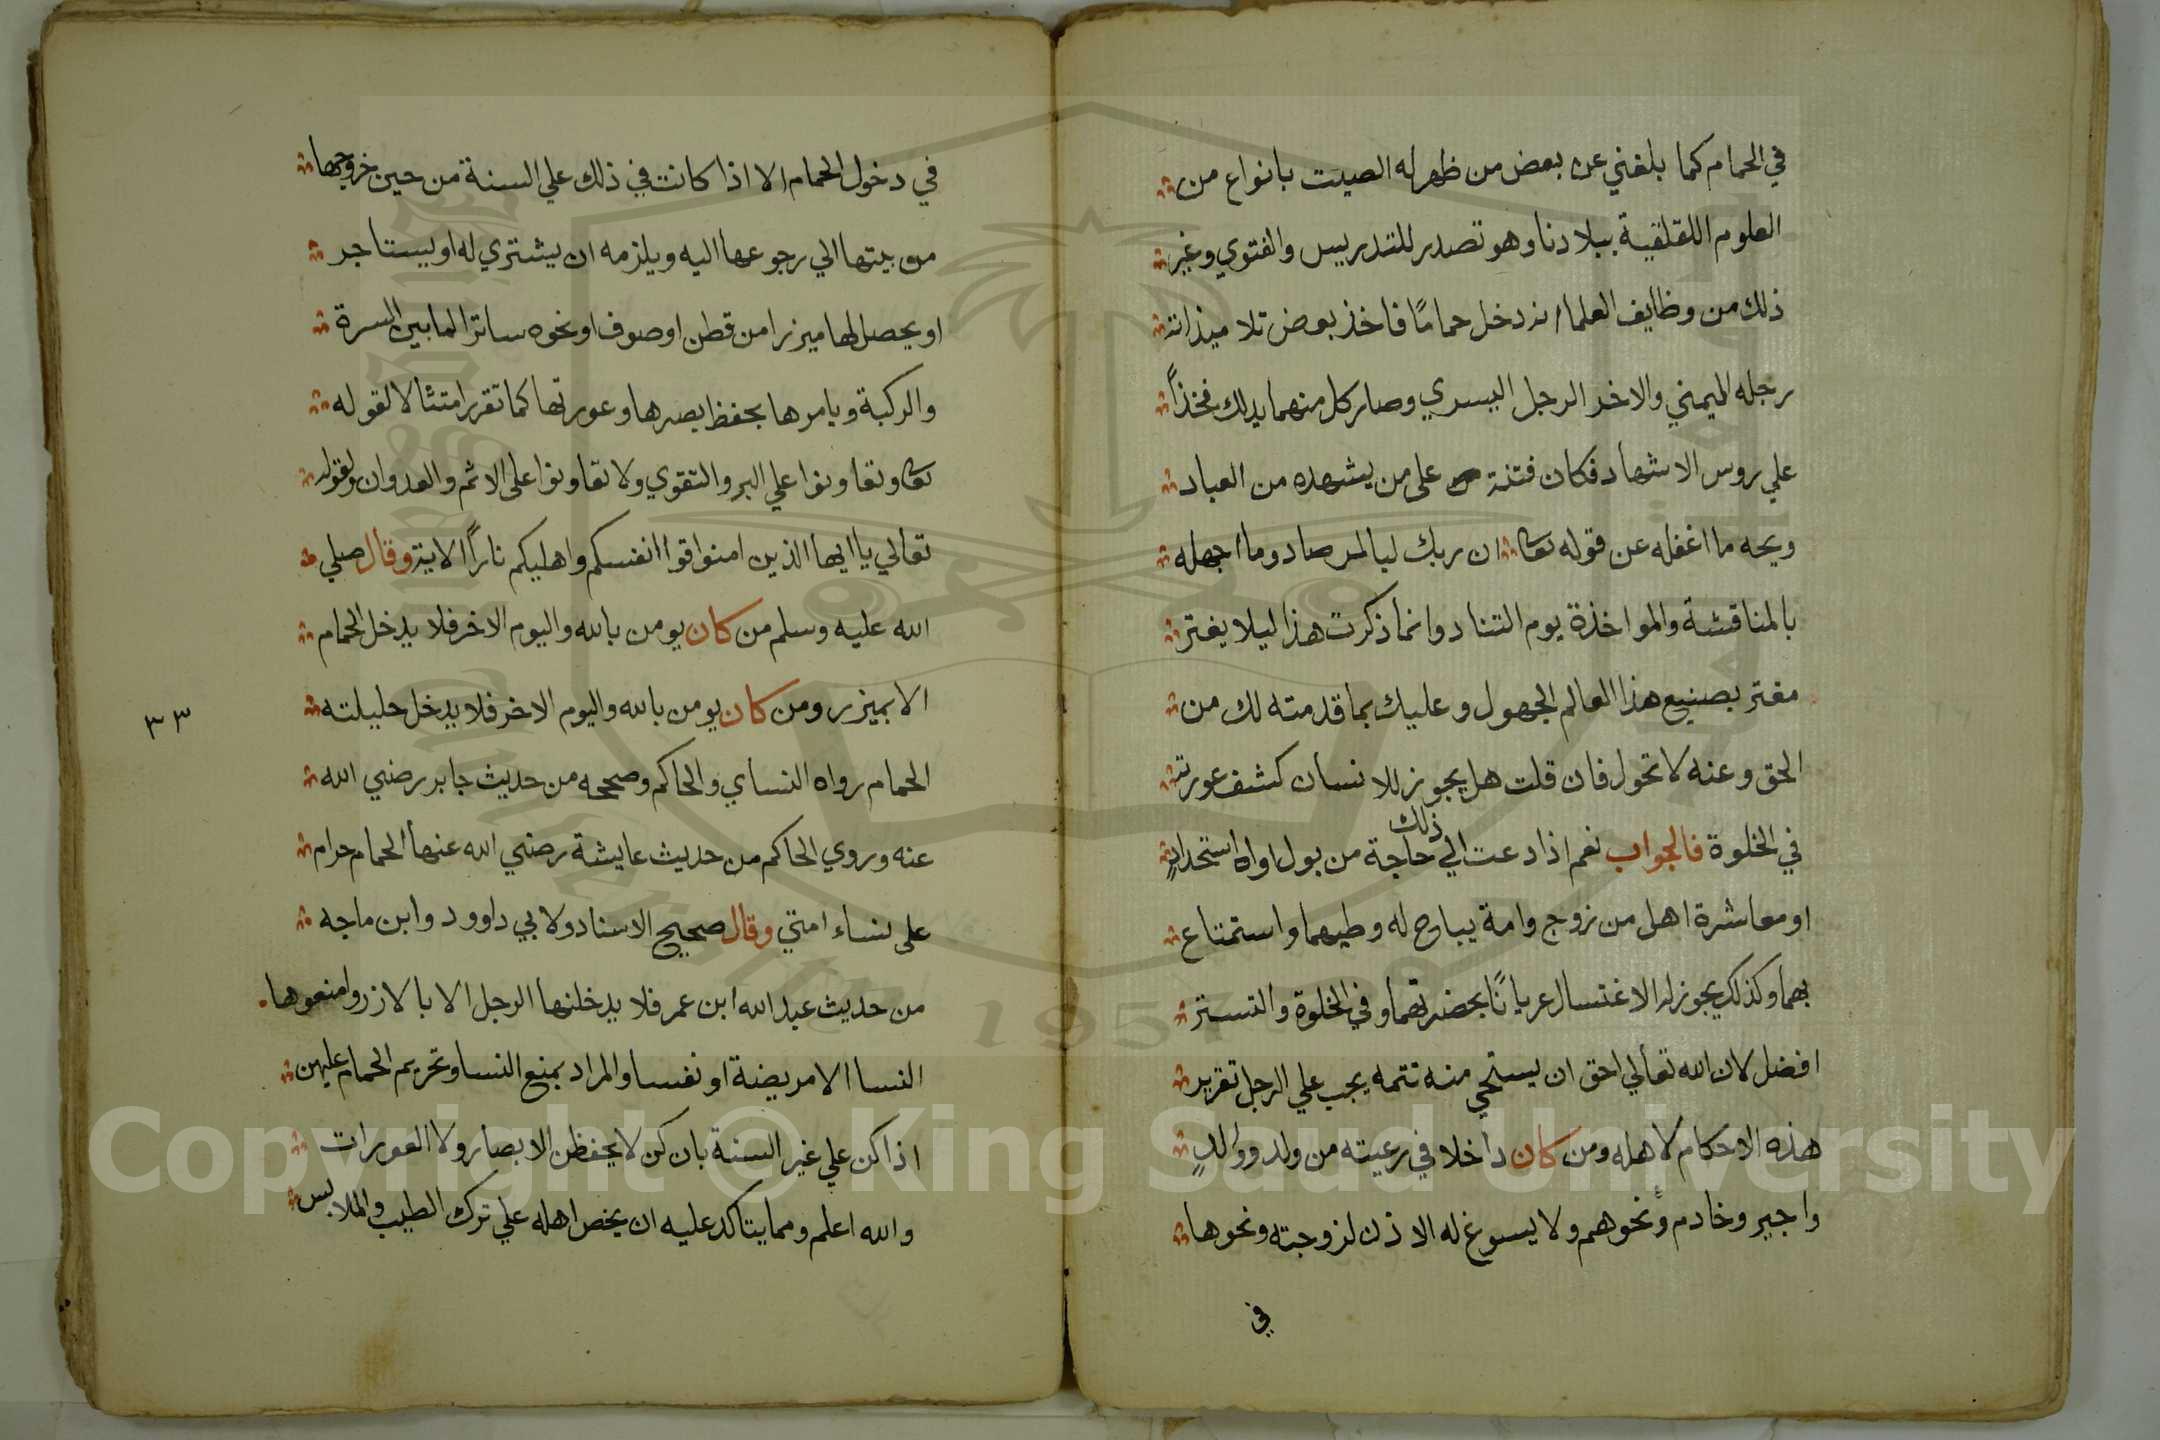 في الحمام كما بلغني عن بعض من ظهر له الصيت بانواع من
العلوم اللقلقية ببلادنا وهو تصدر للتدريس والفتوي وغير
ذلك من وظايف العلما انه دخل حمامًا فاخذ بعض تلاميذاته
رجله اليمني والاخر الرجل اليسري وصار كل منهما يدلك فخذاً
علي روس الاشهاد فكان فتنة على من يشهده من العباد
ويحه ما اغفله عن قوله تعا ان ربك لبالمرصاد وما اجهله
بالمناقشة والمواخذة يوم التناد وانما ذكرت هذا ليلا يغتر
مغتر بصنيع هذا العالم الجهول وعليك بما قدمته لك من
الحق وعنه لا تحول فان قلت هل يجوز للانسان كشف عورته
في الخلوة فالجواب نعم اذا دعت الي ذلك حاجة من بول او استحدادٍ
او معاشرة اهل من زوج وامة يباح له وطيهما واستمتاع
بهما وكذلك يجوز له الاغتسال عريانًا بحضرتهما وفي الخلوة والتستر
افضل لان الله تعالي احق ان يستحي منه تتمه يجب علي الرجل تقرير
هذه الاحكام لاهله ومن كان داخلا في رعيته من ولد ووالدٍ
واجير وخادم ونحوهم ولا يسوغ له الاذن لزوجته ونحوها
في
في دخول الحمام الا اذا كانت في ذلك علي السنة من حين خروجها
من بيتها الي رجوعها اليه ويلزمه ان يشتري له او يستاجر
او يحصل لها ميزرا من قطن او صوف او نحوه ساترا لما بين السرة
والركبة ويامرها بحفظ بصرها وعورتها كما تقرر امتثالا لقوله
تعا وتعاونوا علي البر والتقوي ولا تعاونوا على الاثم والعدوان ولقوله
تعالي يا ايها الذين امنوا قوا انفسكم واهليكم ناراً الاية وقال صلي
الله عليه وسلم من كان يومن بالله واليوم الاخر فلا يدخل الحمام
الا بميزر ومن كان يومن بالله واليوم الاخر فلا يدخل حليلته
الحمام رواه النساي والحاكم وصححه من حديث جابر رضي الله
عنه وروي الحاكم من حديث عايشة رضي الله عنها الحمام حرام
على نساء امتي وقال صحيح الاسناد ولابي داوود وابن ماجه
من حديث عبد الله ابن عمر فلا يدخلنها الرجل الا بالازر وامنعوها
النسا الا مريضة او نفسا والمراد بمنع النسا وتحريم الحمام عليهن
اذا كن علي غير السنة بان كن لا يحفظن الابصار ولا العورات
والله اعلم ومما يتاكد عليه ان يخص اهله علي ترك الطيب والملابس
٣٣
Copyright © King Saud University
1957